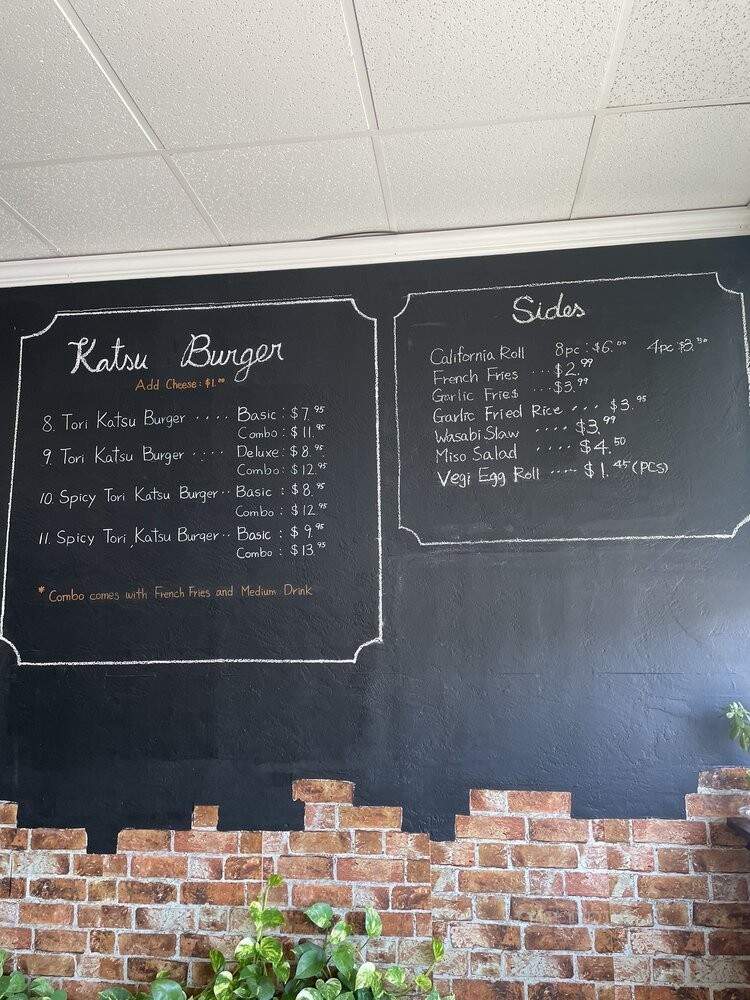 Katsu Burger
Add Cheese: $1.00
8. Tori Katsu Burger .... Basic : $7.95
Combo : $11.95
9. Tori Katsu Burger .... Deluxe : $8.95
Combo : $12.95
10. Spicy Tori Katsu Burger .. Basic : $8.95
Combo : $12.95
11. Spicy Tori Katsu Burger .. Basic : $9.95
Combo : $13.95
* Combo comes with French Fries and Medium Drink
Sides
California Roll 8pc : $6.00 4pc $3.50
French Fries ... $2.99
Garlic Fries ... $3.99
Garlic Fried Rice ... $3.95
Wasabi Slaw .... $3.99
Miso Salad .... $4.50
Vegi Egg Roll ..... $1.45 (PCS)